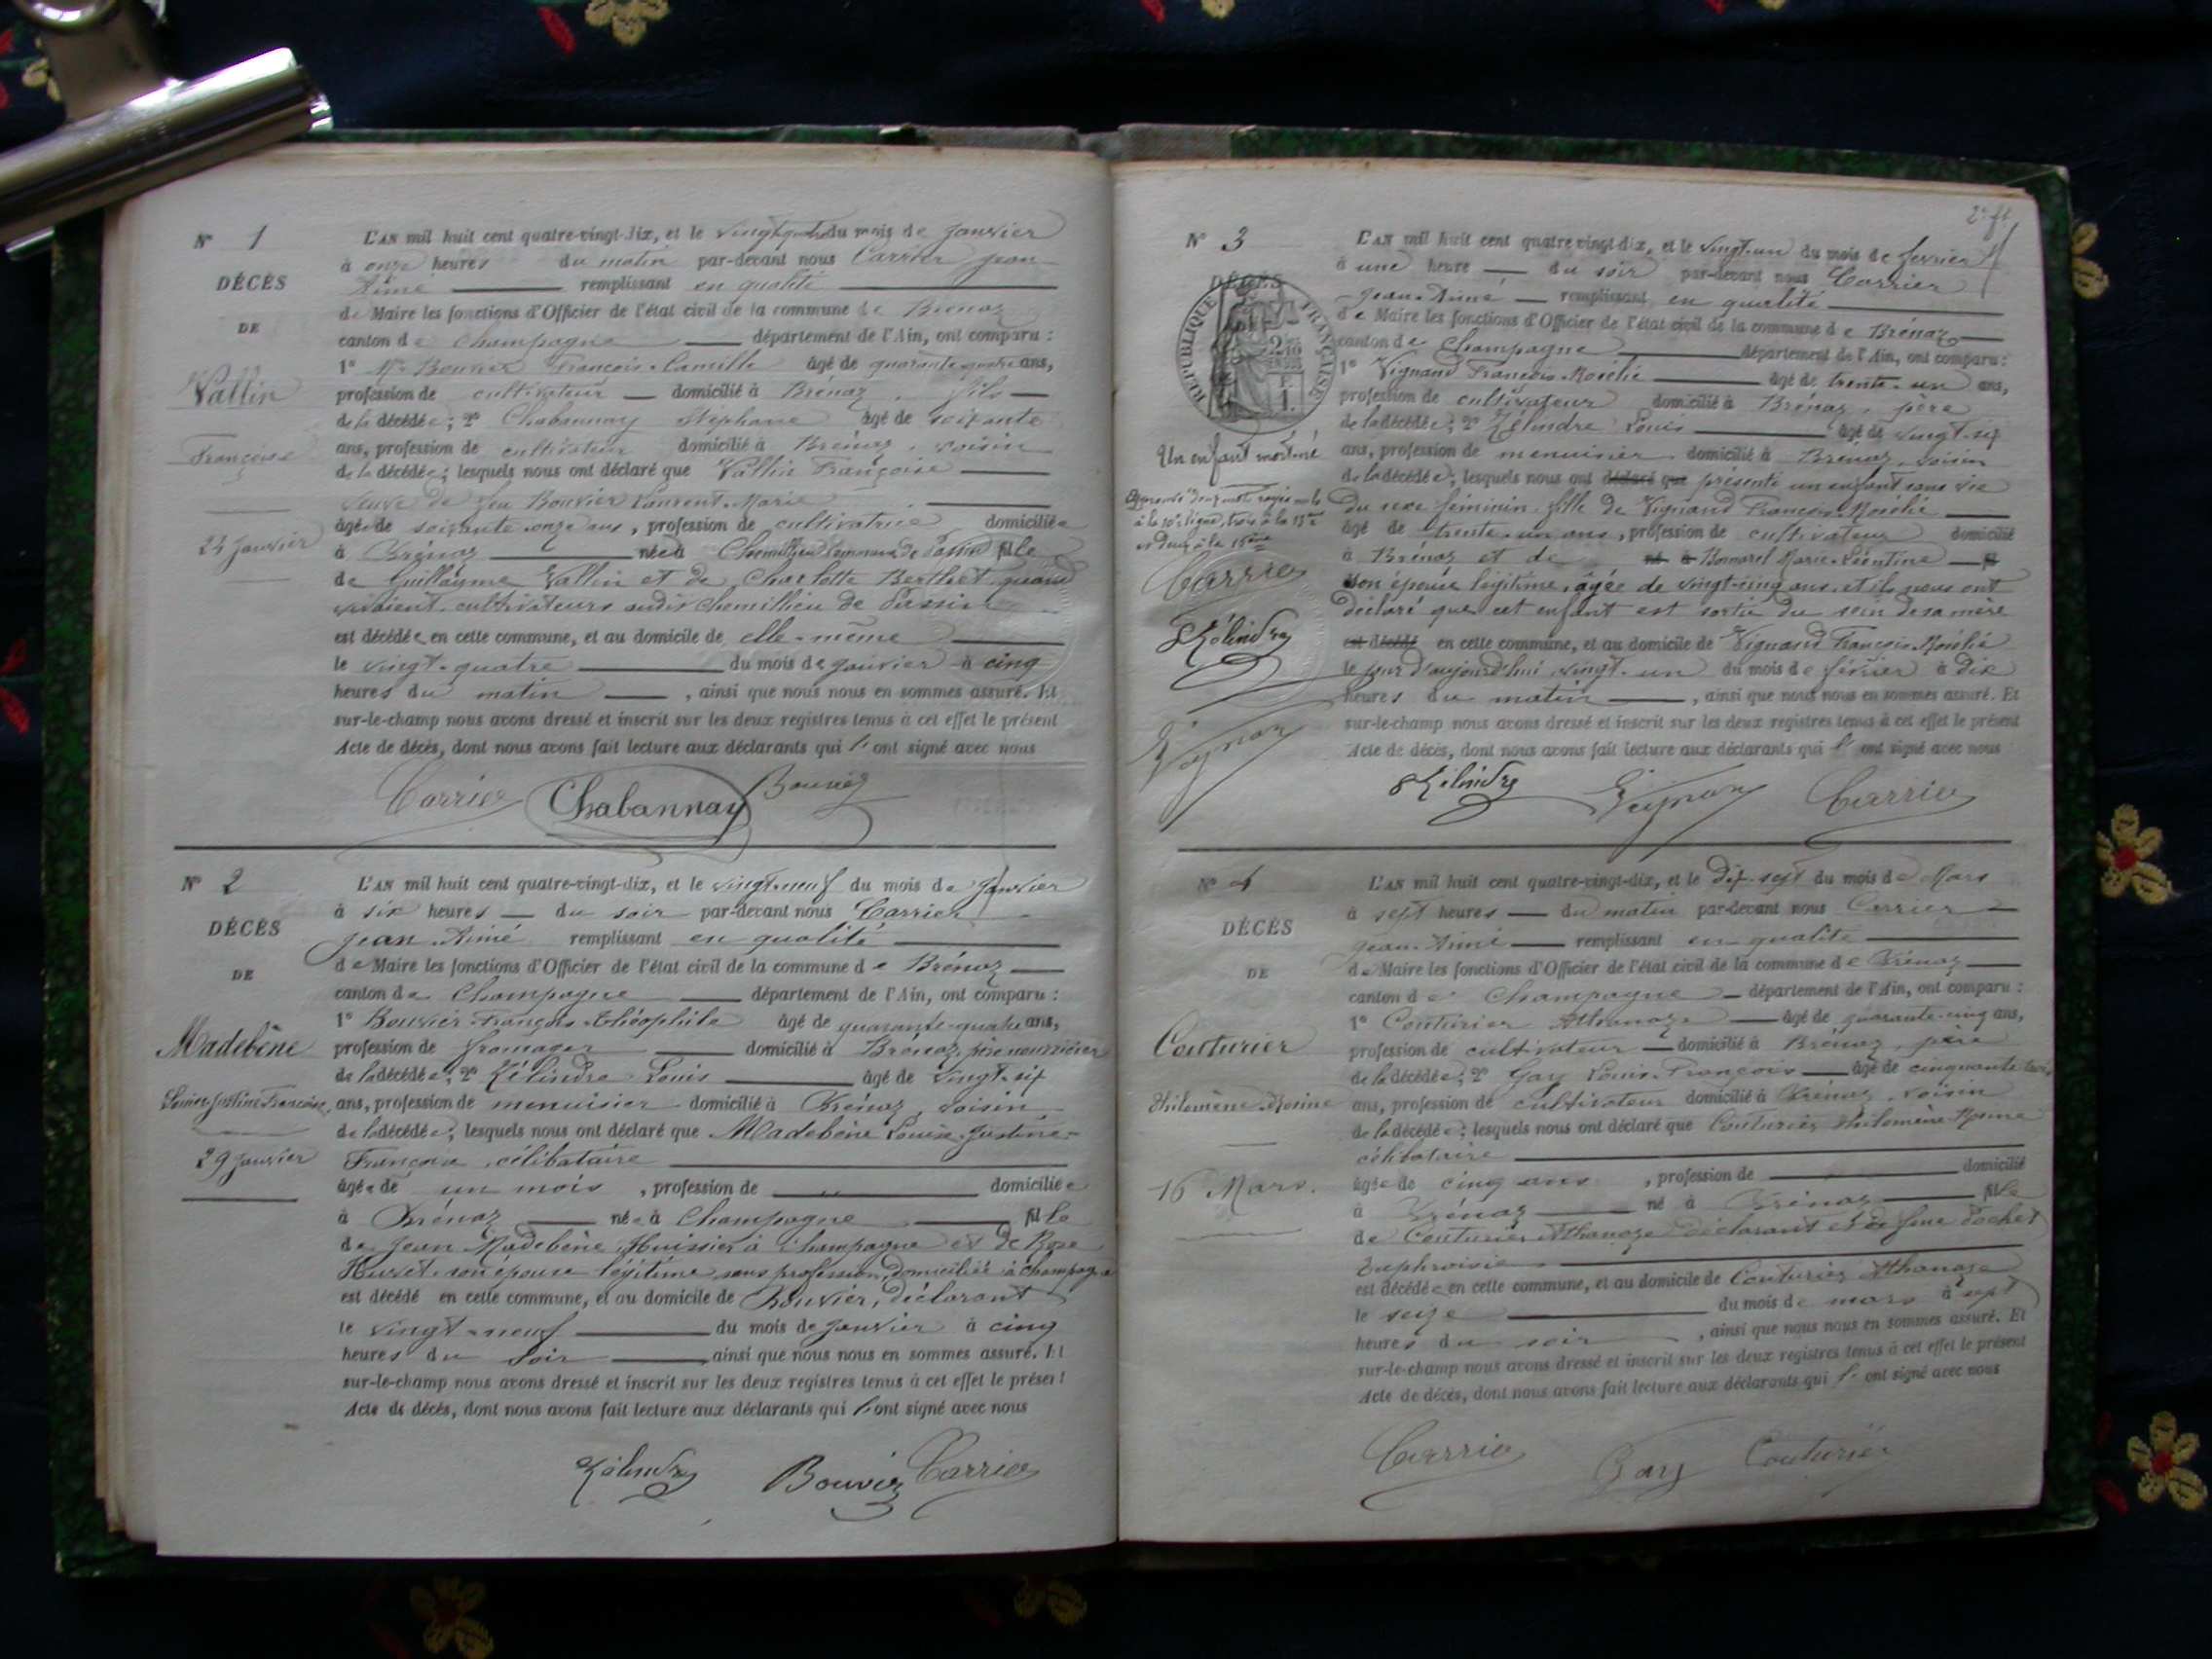 N° 1
DÉCÈS
DE
Vallin
Françoise
24 Janvier
L'AN mil huit cent quatre-vingt-dix, et le vingt-quatre du mois de Janvier
à onze heures du matin par-devant nous Carrier Jean
Aimé remplissant en qualité
de Maire les fonctions d'Officier de l'état civil de la commune de Brénaz
canton de Champagne département de l'Ain, ont comparu :
1° Bouvier François-Camille âgé de quarante-quatre ans,
profession de cultivateur domicilié à Brénaz, fils
de la décédée; 2° Chabannay Stéphane âgé de soixante
ans, profession de cultivateur domicilié à Brénaz, voisin
de la décédée; lesquels nous ont déclaré que Vallin Françoise
veuve de feu Bouvier Laurent-Marie
âgée de soixante-onze ans, profession de cultivatrice domiciliée
à Brénaz née à Chemillieu commune de Passin fille
de Guillaume Vallin et de Charlotte Berthet quand
vivaient cultivateurs audit Chemillieu de Passin
est décédée en cette commune, et au domicile de elle-même
le vingt-quatre du mois de janvier à cinq
heures du matin, ainsi que nous nous en sommes assuré. Et
sur-le-champ nous avons dressé et inscrit sur les deux registres tenus à cet effet le présent
Acte de décès, dont nous avons fait lecture aux déclarants qui l'ont signé avec nous
Carrier Chabannay Bouvier
N° 2
DÉCÈS
DE
Madebène
Louise Justine Françoise
29 Janvier
L'AN mil huit cent quatre-vingt-dix, et le vingt-neuf du mois de Janvier
à six heures du soir par-devant nous Carrier
Jean-Aimé remplissant en qualité
de Maire les fonctions d'Officier de l'état civil de la commune de Brénaz
canton de Champagne département de l'Ain, ont comparu :
1° Bouvier François Théophile âgé de quarante-quatre ans,
profession de fromager domicilié à Brénaz, père nourricier
de la décédée; 2° Zélindre Louis âgé de vingt-six
ans, profession de menuisier domicilié à Brénaz, voisin
de la décédée; lesquels nous ont déclaré que Madebène Louise-Justine-
Françoise, célibataire
âgée de un mois, profession de domiciliée
à Brénaz née à Champagne fille
de Jean Madebène, Huissier à Champagne et de Rose
son épouse légitime sans profession, domiciliée à Champagne
est décédé en cette commune, et au domicile de Bouvier, déclarant
le vingt-neuf du mois de Janvier à cinq
heures du soir ainsi que nous nous en sommes assuré. Et
sur-le-champ nous avons dressé et inscrit sur les deux registres tenus à cet effet le présent
Acte de décès, dont nous avons fait lecture aux déclarants qui l'ont signé avec nous
Zélindre Bouvier Carrier
2e ft
N° 3
DÉCÈS
RÉPUBLIQUE FRANÇAISE
Un enfant mort-né
à la 10e ligne, trois à la 13e
et deux à la 15ème
Carrier
Zélindre
Vignand
L'AN mil huit cent quatre vingt-dix, et le vingt-un du mois de février
à une heure du soir par-devant nous Carrier
Jean-Aimé remplissant en qualité
de Maire les fonctions d'Officier de l'état civil de la commune de Brénaz
canton de Champagne département de l'Ain, ont comparu :
1° Vignand François-Mosélié âgé de trente-un ans,
profession de cultivateur domicilié à Brénaz, père
de la décédée; 2° Zélindre Louis âgé de vingt-six
ans, profession de menuisier domicilié à Brénaz, voisin
de la décédée; lesquels nous ont déclaré que présenté un enfant sans vie
du sexe féminin fille de Vignand François-Mosélié
âgé de trente-un ans, profession de cultivateur domicilié
à Brénaz et de né à Marie-Léontine fil
son épouse légitime, âgée de vingt-cinq ans, et ils nous ont
déclaré que cet enfant est sortie du sein de sa mère
est décédé en cette commune, et au domicile de Vignand François-Mosélié
le jour d'aujourd'hui vingt-un du mois de février à dix
heures du matin, ainsi que nous nous en sommes assuré. Et
sur-le-champ nous avons dressé et inscrit sur les deux registres tenus à cet effet le présent
Acte de décès, dont nous avons fait lecture aux déclarants qui l'ont signé avec nous
Zélindre Vignand Carrier
N° 4
DÉCÈS
DE
Couturier
Philomène-Rosine
16 Mars.
L'AN mil huit cent quatre-vingt-dix, et le dix-sept du mois de Mars
à sept heures du matin par-devant nous Carrier
Jean-Aimé remplissant en qualité
de Maire les fonctions d'Officier de l'état civil de la commune de Brénaz
canton de Champagne département de l'Ain, ont comparu :
1° Couturier Athanaze âgé de quarante-cinq ans,
profession de cultivateur domicilié à Brénaz, père
de la décédée; 2° Gary Louis-François âgé de cinquante trois
ans, profession de cultivateur domicilié à Brénaz, voisin
de la décédée; lesquels nous ont déclaré que Couturier Philomène-Rosine
célibataire
âgée de cinq ans, profession de domicilié
à Brénaz né à Brénaz fille
de Couturier Athanaze déclarant et de feue Pochet
Euphroisie
est décédée en cette commune, et au domicile de Couturier Athanaze
le seize du mois de mars à sept
heures du soir, ainsi que nous nous en sommes assuré. Et
sur-le-champ nous avons dressé et inscrit sur les deux registres tenus à cet effet le présent
Acte de décès, dont nous avons fait lecture aux déclarants qui l'ont signé avec nous
Carrier Gary Couturier